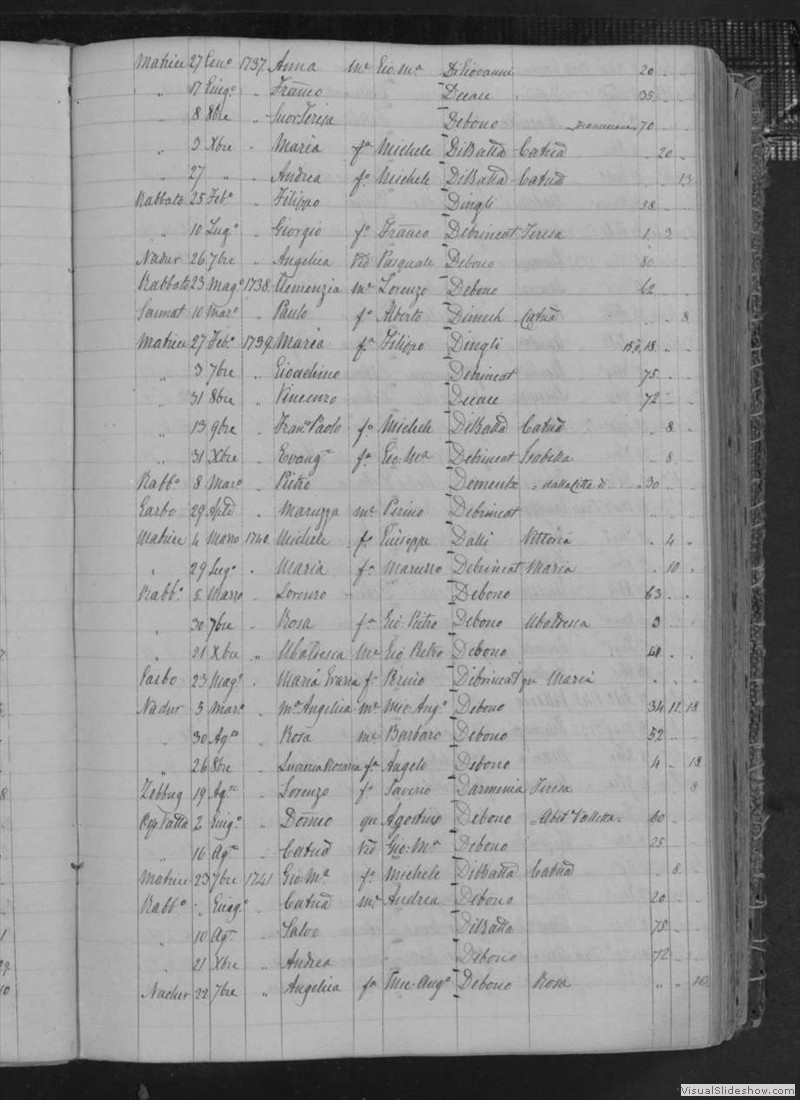 Matrice 27 Genº 1737 Anna mᵉ Gio Mª DeGiovanni 20
„ 17 Giugº „ Franco 35
„ 8 8bre „ Suor Teresa Debono 70
„ 3 Xbre „ Maria fª Michele DiBatta Catnā 20
„ 27 „ „ Andrea fº Michele DiBatta Catnā 13
Rabbato 25 Febº „ Filippo Dingli 38
„ 10 Lugº „ Giorgio fº Franco Debrincat Teresa 1 3
Nadur 26 7bre „ Angelica Vid Pasquale Debono 80
Rabbato 23 Magº 1738 Clemenzia mᵉ Lorenzo Debono 62
Sannat 10 Marº „ Paulo fº Alberto Dimech Catnā 8
Matrice 27 Febº 1739 Maria fª Filippo Dingli 18
„ 3 7bre „ Gioachino Debrincat 75
„ 31 8bre „ Vincenzo 72
„ 13 9bre „ Franº Paolo fº Michele DiBatta Catnā 8
„ 31 Xbre „ Evangª fª Gio Mª Debrincat Isabella 8
Rabbº 8 Marº „ Pietro 30
Garbo 29 „ Maruzza mᵉ Perino Debrincat
Matrice 4 Marzo 1740 Michele fº Giuseppe Dalli Vittoria 4
„ 29 Lugº „ Maria fª Debrincat Maria 10
Rabbº 5 Marzo „ Lorenzo Debono 63
„ 30 7bre „ Rosa fª Gio Pietro Debono Ubaldesca 3
„ 21 Xbre „ Ubaldesca Mᵉ Gio Pietro Debono
Garbo 23 Magº „ Maria fª Debrincat qu Maria
Nadur 5 Marº „ Mª Angelica mᵉ Mic Angº Debono 34 11 18
„ 30 Agº „ Rosa mᵉ Barbaro Debono 52
„ 26 8bre „ Lucrezia Rosaria fª Angelo Debono 4 18
Zebbug 19 Agº „ Lorenzo fº Saverio Darmenia Teresa 8
2 Giugº „ Domco qu Agostino Debono Abit Valletta 60
„ 16 Agº „ Catnā Vid Gio Mª Debono 25
Matrice 23 7bre 1741 Gio Mª fº Michele DiBatta Catnā 8
Rabbº „ Giugº „ Catnā mᵉ Andrea Debono 20
„ 10 Agº „ Salvo DiBatta 75
„ 21 Xbre „ Andrea Debono 72
Nadur 22 7bre „ Angelica fª Debono Rosa 10
VisualSlideshow.com